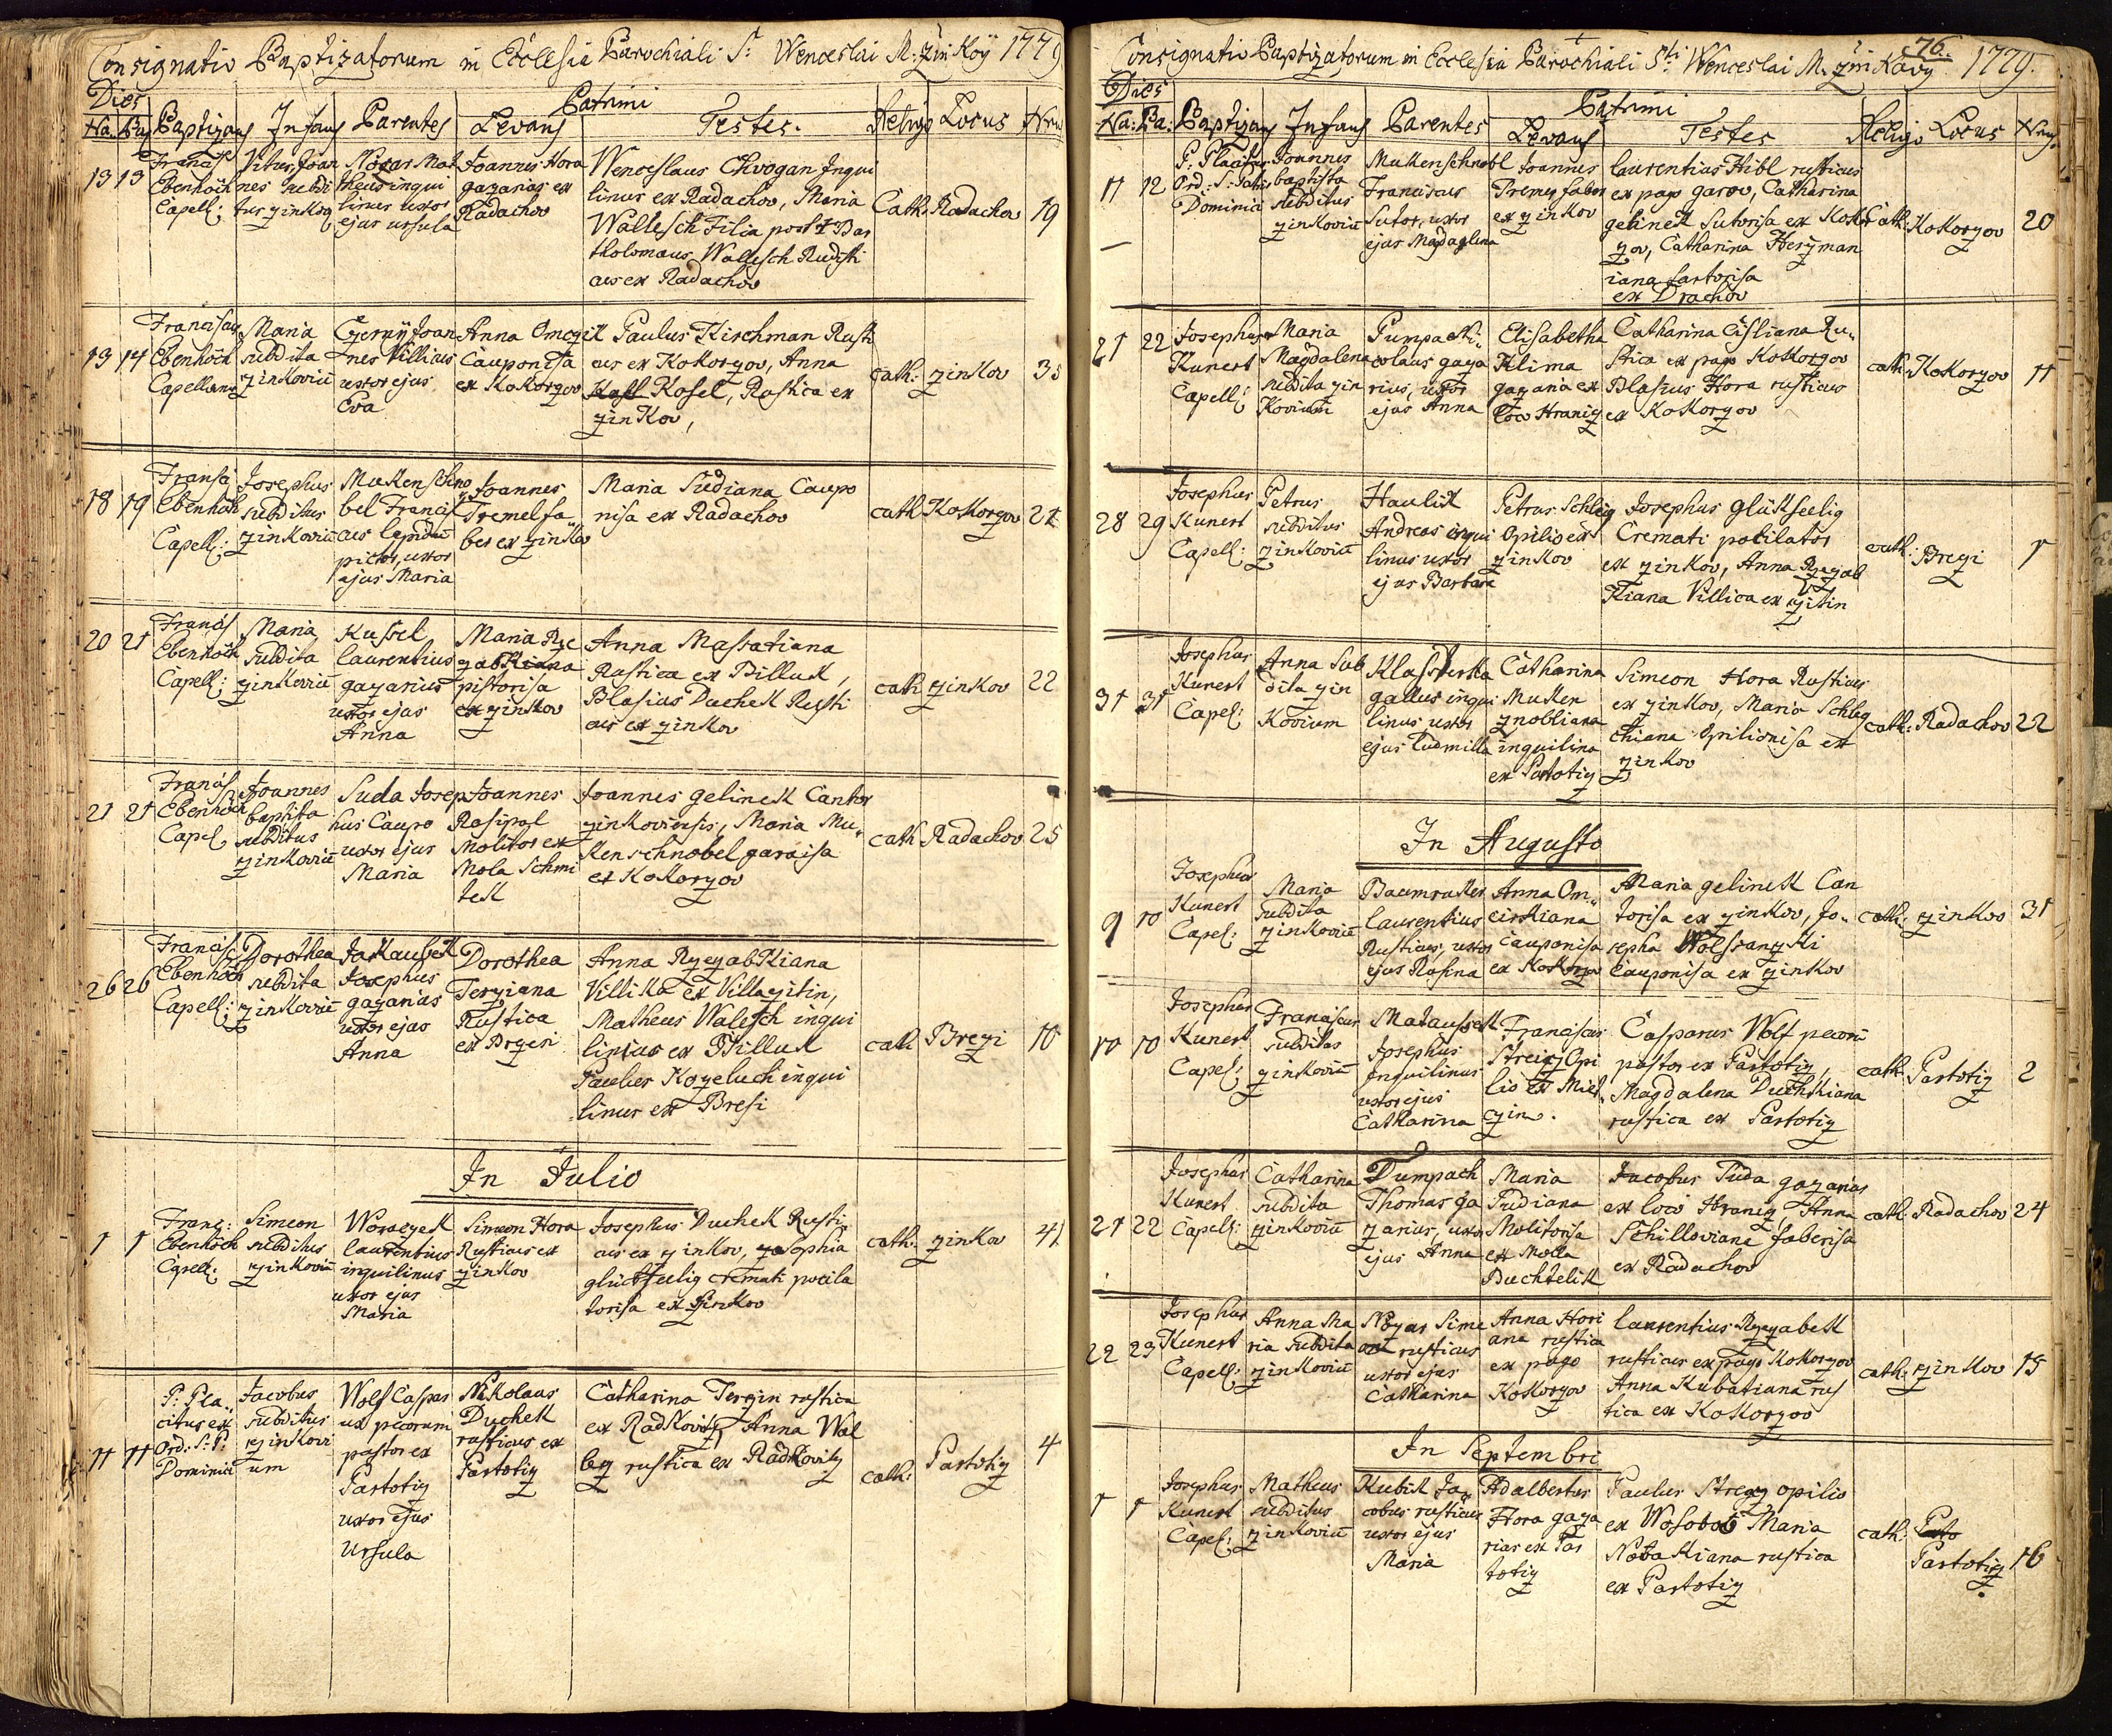 Consignatio Baptizatorum in Ecclesia Parochiali S: Wenceslai M: Zinkoÿ 1779
Dies Patrini
Na: Ba: Baptizans Infans Parentes Levans Testes. Religio Locus Nrus
13 13
Francis
Ebenhöch
Capell:
Vitus, Joan
nes subdi
tus zinkov
Nozar Mat
theus inqui
linus uxor
ejus ursula
Joannes Hora
gazarius ex
Radachov
Wenceslaus Chvogan Inqui
linus ex Radachov, Maria
Wallesch Filia post † Bar
tholomaus Wallesch Rusti
cus ex Radachov
Cath: Radachov 19
13 14
Franciscus
Ebenhöch
Capellanus
Maria
subdita
zinkoviũ
Czernÿ Joan
nes Villicus
uxor ejus
Eva
Anna Omczik
Cauponissa
ex Kokorzov
Paulus Kirschman Rusti
cus ex Kokorzov, Anna
Kosel, Rustica ex
zinkov,
cath: zinkov 35
18 19
Francis
Ebenhöh
Capell:
Josephus
subditus
zinkoviũ
Mukenschno
bel Francis
cus lapidũ
pictor, uxor
ejus Maria
Joannes
Tremel fa
ber ex zinkov
Maria Sudiana Caupo
nisa ex Radachov
cath Kokorzov 21
20 21
Francis
Ebenhöch
Capell:
Maria
subdita
zinkoviũ
Kussel
laurentius
gazarius
uxor ejus
Anna
Maria Rze
zabkiana
pistorisa
ex zinkov
Anna Massatiana
Rustica ex Billuk,
Blasius Duchek Rusti
cus ex zinkov
cath zinkov 22
21 21
Francis
Ebenhöch
Capel,
Joannes
baptista
subditus
zinkoviũ
Suda Josep
hus Caupo
uxor ejus
Maria
Joannes
Rosipal
Molitor ex
Mola Schmi
tek
Joannes gelinek Cantor
zinkoviensis, Maria Mu„
kenschnobel garaisa
ex Kokorzov
cath Radachov 25
26 26
Francis
Ebenhöch
Capell:
Dorothea
subdita
zinkoviũ
Jakaubek
Josephus
gazarius
uxor ejus
Anna
Dorothea
Terziana
Rustica
ex Brzezi
Anna Rzezabkiana
Villika ex Villa zitin,
Matheus Walesch inqui
linus ex Billuk
Paulus Kozeluch inqui
linus ex Bresi
cath Brezi 10
In Julio
1 1
Franc:
Ebenhöch
Capell:
Simeon
subditus
zinkoviũ
Woraczek
laurentius
inquilinus
uxor ejus
Maria
Simeon Hora
Rusticus ex
zinkov
Josephus Duchek Rusti
cus ex zinkov, zosophia
glückseelig cremati pocila
torisa ex zinkov
cath: zinkov 41
11 11
P: Pla„
citus ex
Ord: S: P:
Dominici
Jacobus
subditus
zinkovi
um
Wolf Caspar
us pecorum
pastor ex
Partotiz
uxor ejus
Ursula
Nikolaus
Duchek
rusticus ex
Partotiz
Catharina Terzin rustica
ex Radkovitz, Anna Wal
bez rustica ex Radkovitz
cath: Partotiz 4
76.
Consignatio Baptizatorum in Ecclesia Parochiali Sti Wenceslai M. Zinkovÿ 1779.
Dies Patrini
Na: Ba: Baptizans Infans Parentes Levans Testes Religio Locus Nrus
11 12
P: Placitus
Ord: S: Patris
Dominici
Joannes
baptista
subditus
zinkoviũ
Mukenschnobl
Franciscus
Sutor, uxor
ejus Magdaglena
Joannes
Tremez faber
ex zinkov
laurentius Hibl rusticus
ex pago garov, Catharina
gelinek Sutorisa ex Kokor
zov, Catharina Herzman
iana sartorisa
ex Drachov
Cath: Kokorzov 20
21 22
Josephus
Kunert
Capell:
Maria
Magdalena
subdita zin
kovium
Pumpa Ni„
colaus gaza
rius, uxor
ejus Anna
Elisabetha
Klima
gazaria ex
loco Hraniz
Catharina Cisliana Ru„
stica ex pago Kokorzov
Blasius Hora rusticus
ex Kokorzov
cath: Kokorzov 11
28 29
Josephus
Kunert
Capell:
Petrus
subditus
zinkoviũ
Haulik
Andreas inqui
linus uxor
ejus Barbara
Petrus Schleg
Opilio ex
zinkov
Josephus glükseelig
Cremati pocilator
ex zinkov, Anna Rzezab
kiana Villica ex zitin
cath: Brezi 1
31 31
Josephus
Kunert
Capel:
Anna Sub
dita zin
kovium
Klassterka
gallus inqui
linus uxor
ejus Ludmilla
Catharina
Muken
znobliana
inquilina
ex Partotiz
Simeon Hora Rusticus
ex zinkov, Maria Schleg
chiana Opilionisa ex
zinkov
cath: Radachov 22
In Augusto
9 10
Josephus
Kunert
Capel:
Maria
subdita
zinkoviũ
Baumruker
laurentius
Rusticus, uxor
ejus Rosina
Anna Om„
cirkiana
Cauponisa
ex Kokorzo
Maria gelinek Can
torisa ex zinkov, Jo„
sepha Wolfranzki
Cauponisa ex zinkov
cath: zinkov 31
10 10
Josephus
Kunert
Capel:
Franciscus
subditus
zinkoviũ
Mataussek
Josephus
Inquilinus
uxor ejus
Catharina
Franciscus
Streizj Opi
lio ex Miet„
czin.
Casparus Wolf pecorũ
pastor ex Partotiz,
Magdalena Duchkiana
rustica ex Partotiz
cath: Partotiz 2
21 22
Josephus
Kunert
Capell:
Catharina
subdita
zinkoviũ
Dumpach
Thomas ga
zarius, uxor
ejus Anna
Maria
Sudiana
Molitorisa
ex Molla
Buchtelik
Jacobus Suda gazarius
ex loco Hraniz Anna
Schilloviana faberisa
ex Radachov
cath: Radachov 24
22 23
Josephus
Kunert
Capell:
Anna Ma
ria subdita
zinkoviũ
Nozar Sime
on rusticus
uxor ejus
Catharina
Anna Hori
ana rustica
ex pago
Kokorzov
laurentius Rzezabek
rusticus ex pago Kokorzov
Anna Kubatiana rus
tica ex Kokorzov
cath: zinkov 15
In Septembri
1 1
Josephus
Kunert
Capel:
Matheus
subditus
zinkoviũ
Kubik Ja„
cobus rusticus
uxor ejus
Maria
Adalbertus
Hora gaza
rius ex Par
totiz
Paulus Stregz opilio
ex Wosobov Maria
Notakiana rustica
ex Partotiz
cath: Parto
Partotiz 16